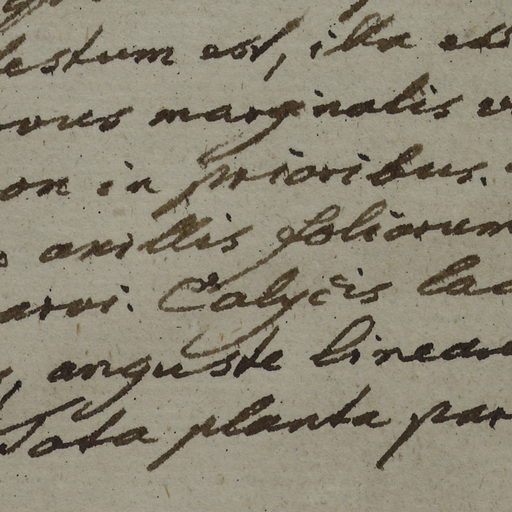 lestum est, illa
marginalis
on in prioribus.
axillis foliorum
arvi. Calycis lac
anguste linear
Tota planta par